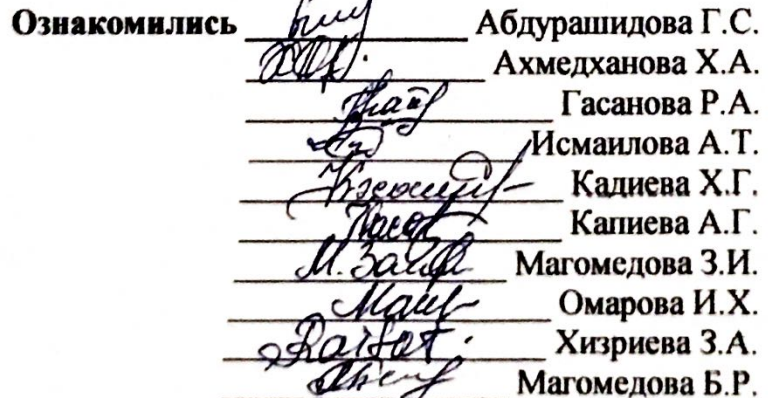 Ознакомились Абдурашидова Г.С.
Ахмедханова Х.А.
Гасанова Р.А.
Исмаилова А.Т.
Кадиева Х.Г.
Капиева А.Г.
М. Заир Магомедова З.И.
Омарова И.Х.
Хизриева З.А.
Магомедова Б.Р.